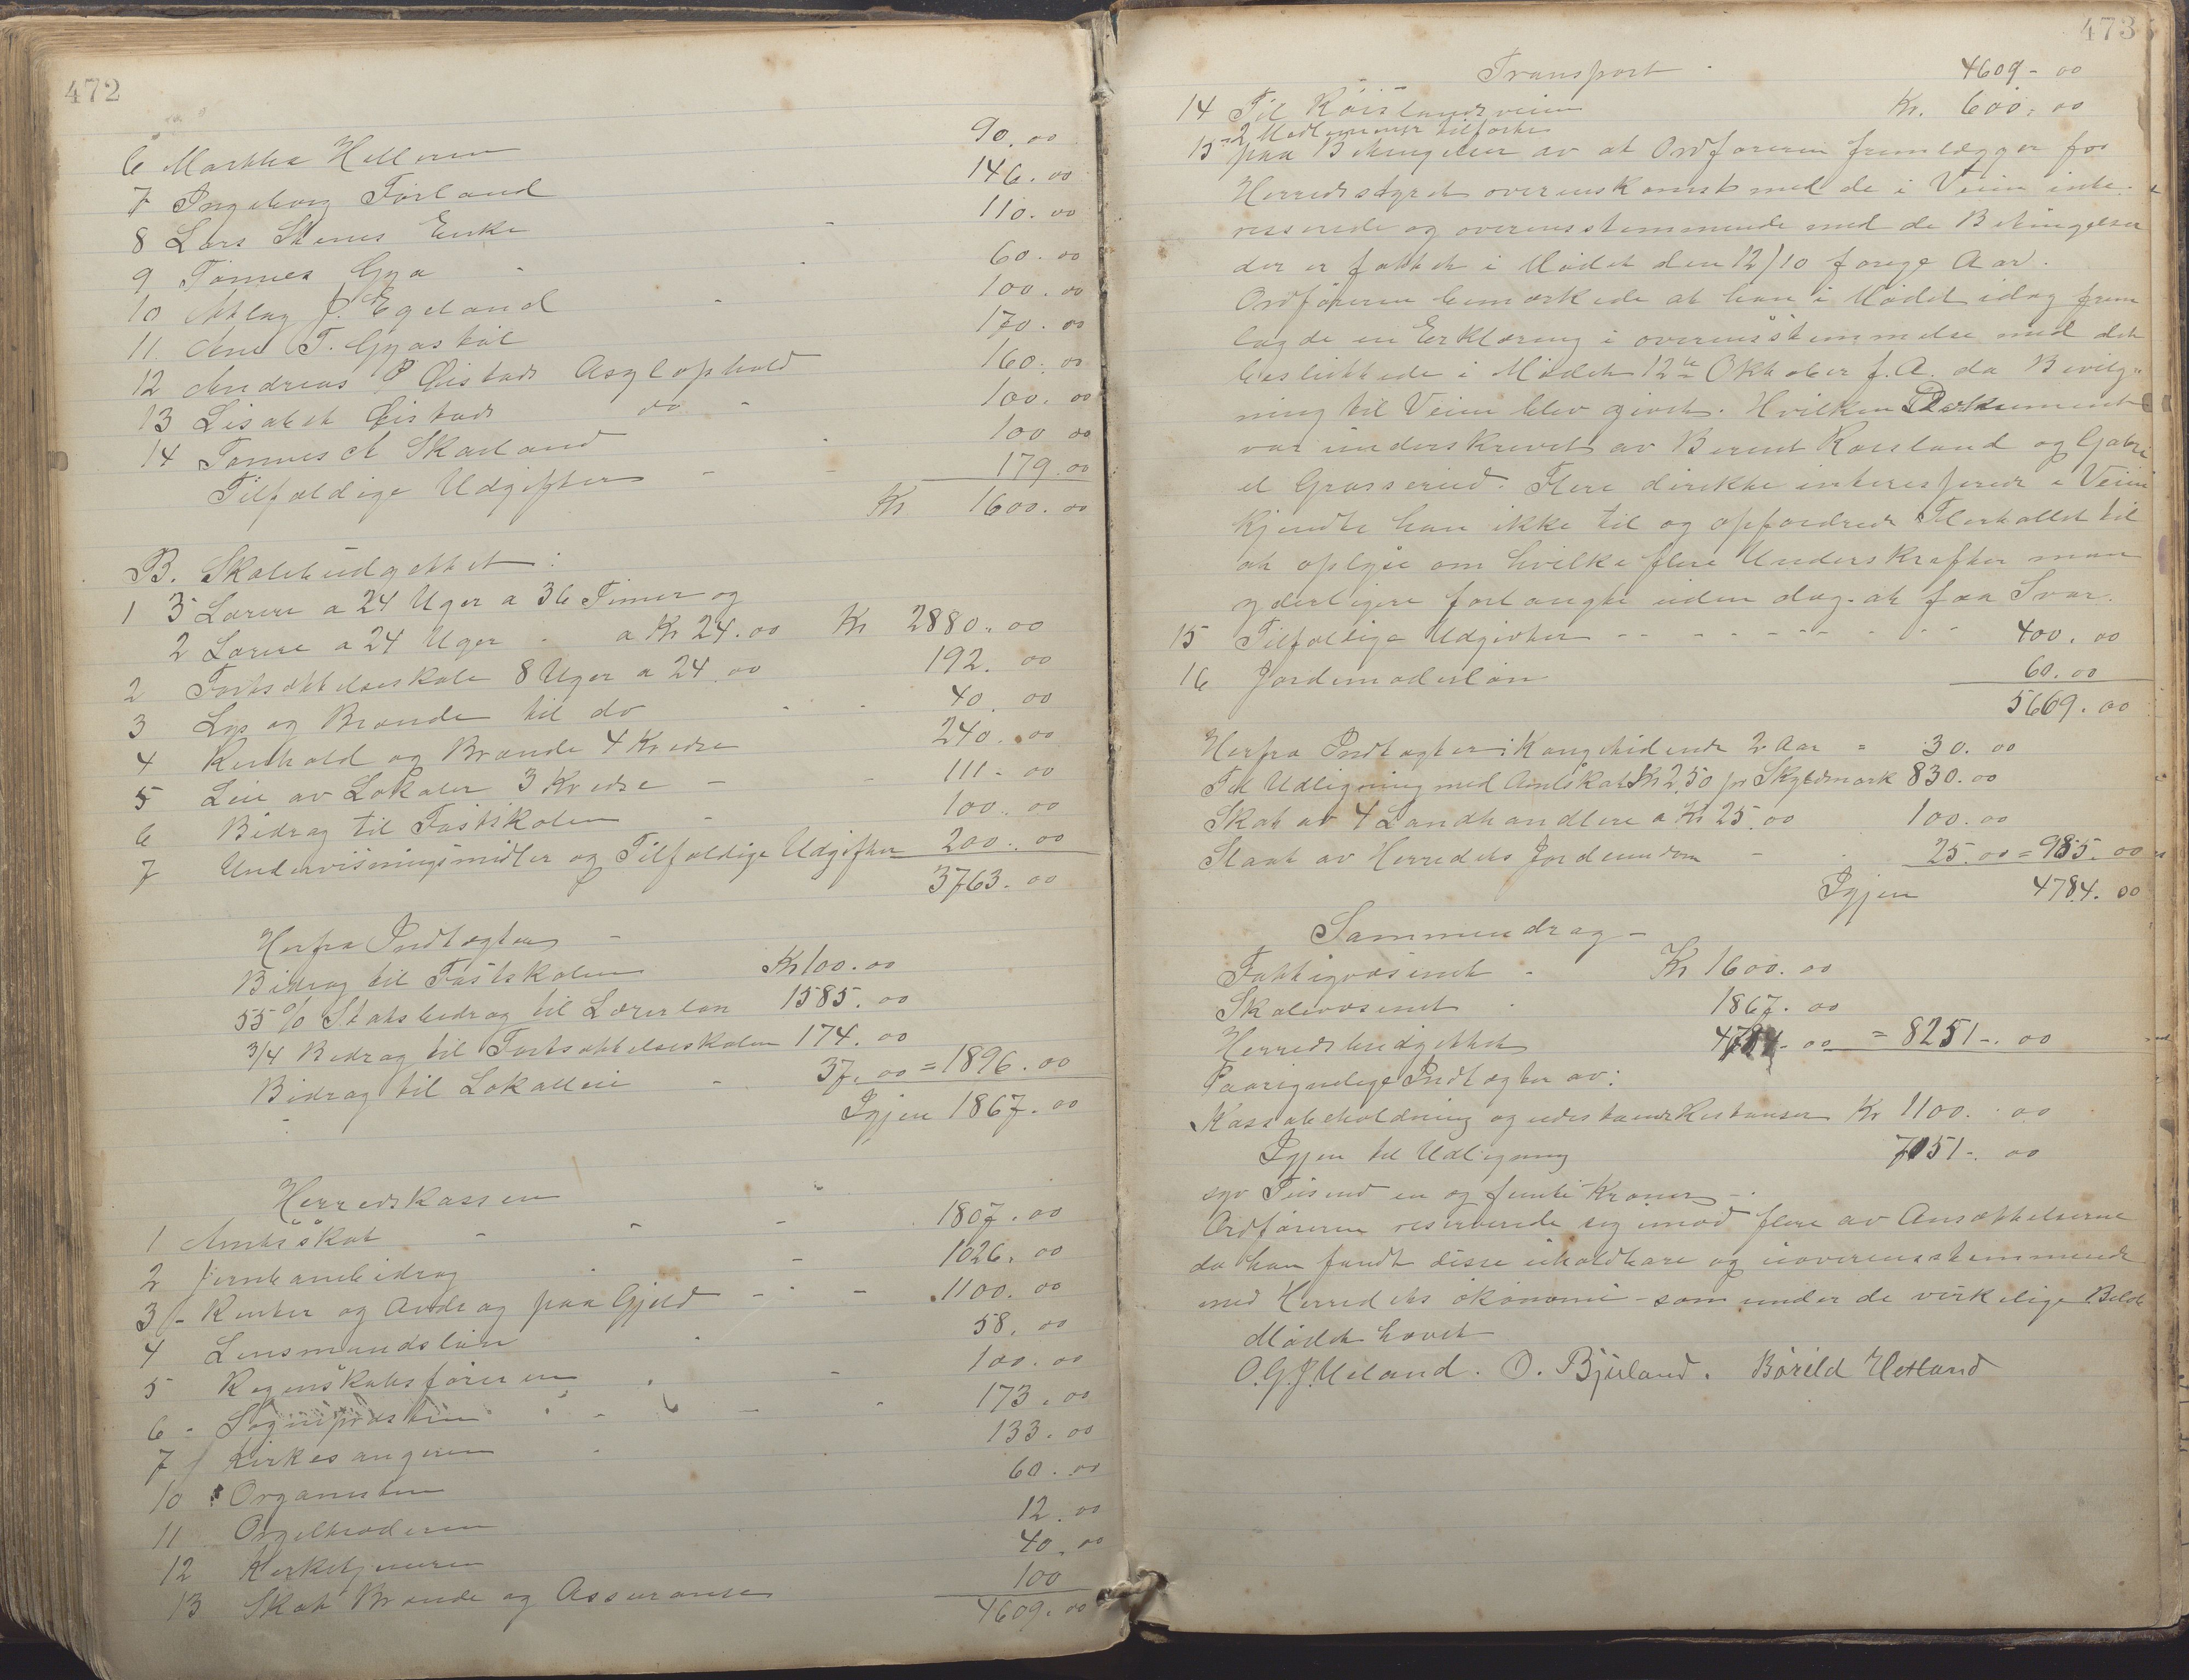 472
6 Marthe Helleren 90.00
7 Ingeborg Førland 146.00
8 Lars Stenes Enke - 110.00
9 Tønnes Gya - - 60.00
10 Atlag J. Egeland - 100.00
11 Ane T. Gyastøl 170.00
12 Andreas P Eistads Asylophold 160.00
13 Lisabet Eistads do - 100.00
14 Tønnes A Skarland - 100 00
Tilfældige Udgifter - - 179.00
Kr 1600.00
B. Skolebudgettet :
1 3 Lærere a 24 Uger a 36 Timer og
2 Lærere a 24 Uger - a Kr 24.00 Kr 2880.00
2 Fortsættelseskole 8 Uger a 24.00 192.00
3 Lys og Brænde til do - - 40.00
4 Renhold og Brænde 4 Kredse 240.00
5 Leie av Lokaler 3 Kredse - - 111-00
6 Bidrag til Fastskolen - 100.00
7 Undervisningsmidler og Tilfældige Udgifter 200.00
3763.00
Herfra Indtægten -
Bidrag til Fastskolen Kr 100.00
55 % Statsbidrag til Lærerløn 1585.00
3/4 Bidrag til Fortsættelseskolen 174.00
Bidrag til Lokalleie - 37.00 = 1896.00
Igjen 1867.00
Herredskassen
1 Amtsskat - - - 1807.00
2 Jernbanebidrag - - 1026.00
3 - Renter og Avdrag paa Gjeld - - - 1100.00
4 Lensmandsløn 58.00
5 Regnskabsføreren - 100.00
6 - Sognepræsten - - - 173.00
7 Kirkesangeren - - 133.00
10 Organisten 60.00
11 Orgeltræderen 12.00
12 Kirketjeneren 40.00
13 Skat Brænde og Assuranse 100
4609.00
473
Transport - 4609-00
14 Til Røislandsveien Kr. 600.00
2 Medlemmer tilførte
15 paa Betingelse av at Ordføreren fremlægger for
Herredsstyret overenskomst med de i Veien inte-
resserede og overensstemmende med de Betingelser
der er fattet i Mødet den 12/10 forige Aar.
Ordføreren bemærkede at han i Mødet idag frem
lagde en Erklæring i overensstemmelse med det
besluttede i Mødet 12te Oktober f.A. da Bevilg-
ning til Veien blev givet. Hvilken Dokument
var underskrevet av Berent Røisland og Gabri
el Grøsseried. Flere direkte interesserede i Veien
kjendte han ikke til og opfordrede Flertallet til
at oplyse om hvilke flere Underskrifter man
yderligere forlangte uden dog at faa Svar.
15 Tilfældige Udgivter - - - - - - - - - 400.00
16 Jordemoderløn 60.00
5669.00
Herfra Indtægter: Kongetidende 2 Aar - 30.00
Til Udligning med Amtskat Kr 2,50 pr Skyldmark 830.00
Skat av 4 Landhandlere a Kr 25.00 100.00
Skat av Herredets Jordeiendom - 25.00 = 985.00
Igjen 4784.00
Sammendrag -
Fattigvæsenet - Kr 1600.00
Skolevæsenet - 1867.00
Herredsbudgettet 4784-00 = 8251-.00
Paaregnelige Indtægter av:
Kassabeholdning og udestaaende Restanser Kr 1100.00
Igjen til Udligning 7151-.00
syv Tusend en og femti Kroner -
Ordføreren reserverede sig imod flere av Ansættelserne
da han fandt disse uholdbare og uoverensstemmende
med Herredets økonomi - som under de virkelige Beløb
Mødet hævet
O.G.J. Ueland. O. Bjuland. Børild Hetland